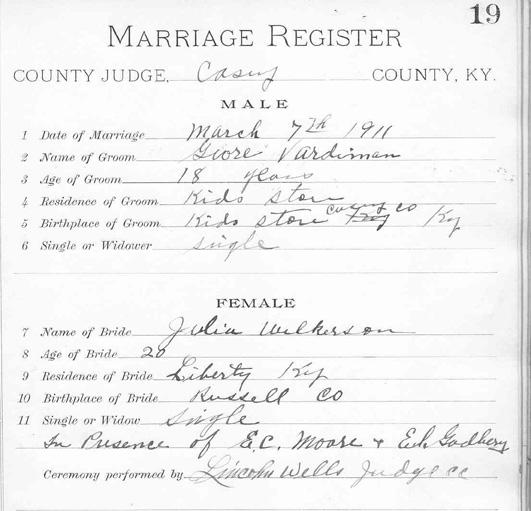 19
MARRIAGE REGISTER
COUNTY JUDGE, Casey COUNTY, KY.
MALE
1 Date of Marriage March 7th 1911
2 Name of Groom Vardiman
3 Age of Groom 18 years
4 Residence of Groom Kids Store
5 Birthplace of Groom Kids Store Casey co Ky
6 Single or Widower single
FEMALE
7 Name of Bride Julia Wilkerson
8 Age of Bride 20
9 Residence of Bride Liberty Ky
10 Birthplace of Bride Russell Co
11 Single or Widow Single
In Presence of E.C. Moore +
Ceremony performed by Lincoln Wells Judge cc